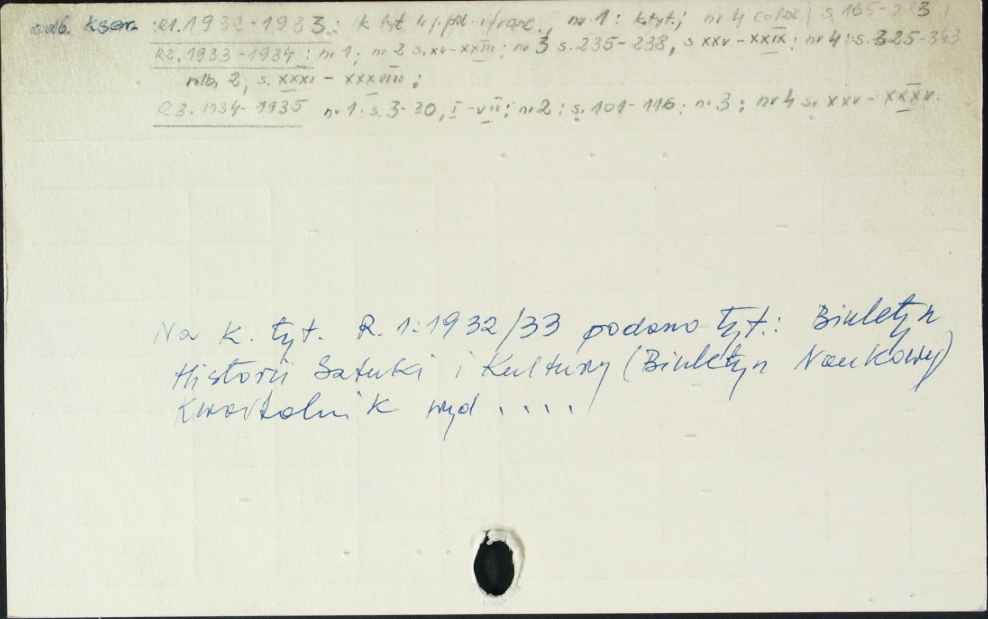 odb. kser. R1.1932-1933: k. tyt. w j. pol. i franc., nr 1: k. tyt.; nr 4 s. 165-2 3;
R2.1933-1934: nr 1; nr 2 s. xv-xxiii; nr 3 s. 235-238, s xxv-xxix; nr 4: s. 325-343
2, s. xxxi - xxxviii;
R3.1934-1935 nr 1: s. 3-30, I-VII; nr 2: s. 101-116; nr 3; nr 4 s. xxv-xxxv.
Na k. tyt. R. 1:1932/33 podano tyt.: Biuletyn
Historii Sztuki i Kultury (Biuletyn Naukowy)
Kwartalnik wyd ....